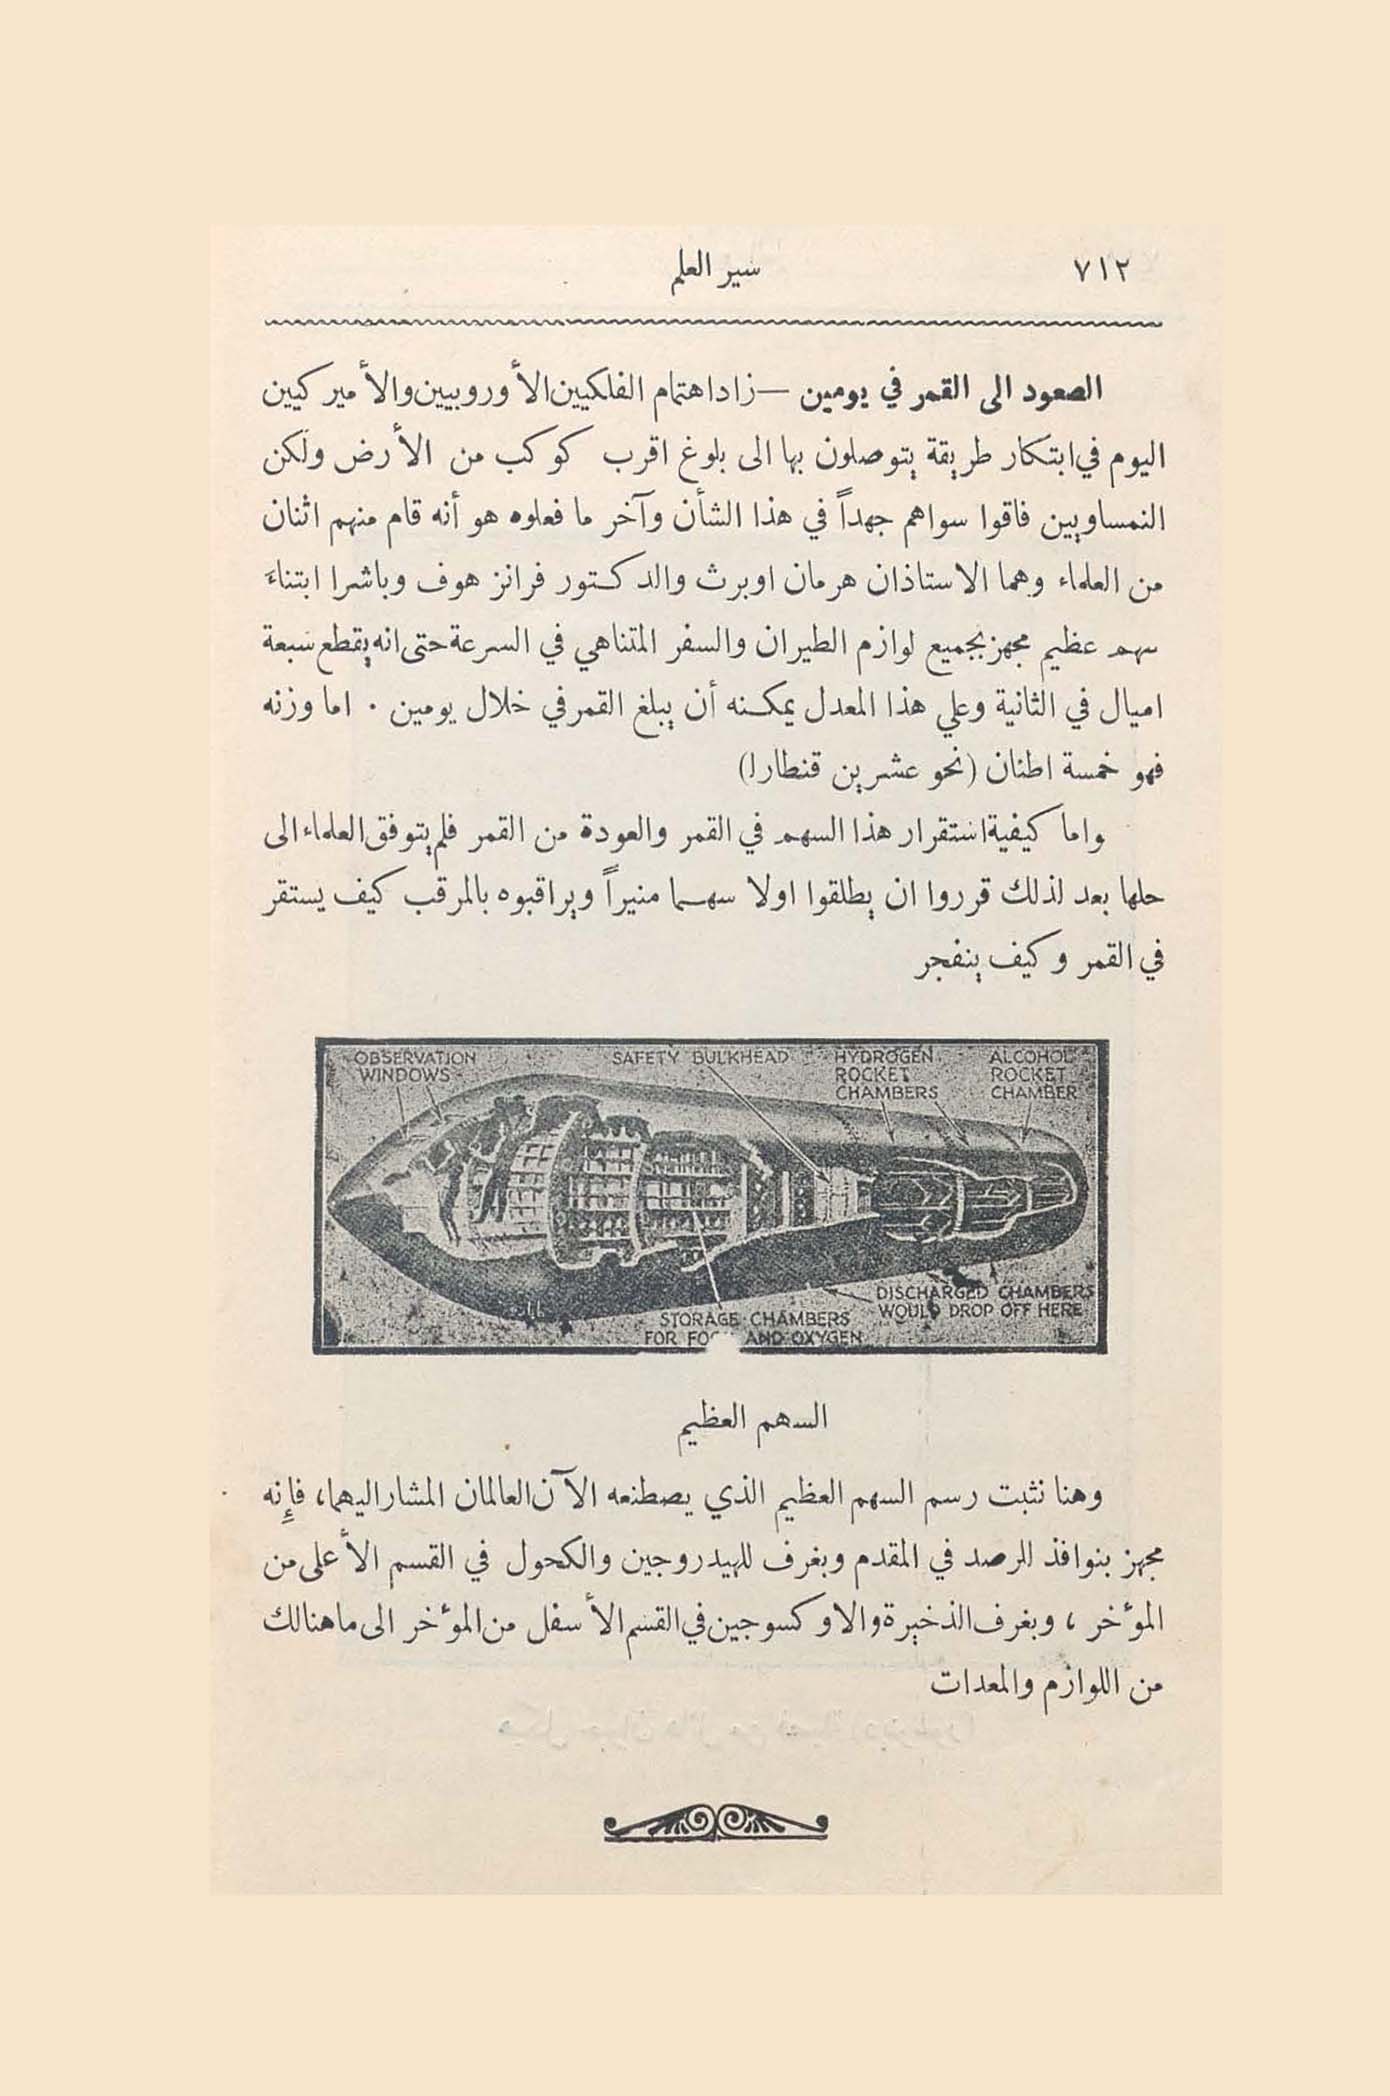 ٧١٢
سير العلم
الصعود الى القمر في يومين — زاد اهتمام الفلكيين الأوروبيين والأميركيين
اليوم في ابتكار طريقة يتوصلون بها الى بلوغ اقرب كوكب من الأرض ولكن
النمساويين فاقوا سواهم جهداً في هذا الشأن وآخر ما فعلوه هو أنه قام منهم اثنان
من العلماء وهما الاستاذان هرمان اوبرث والدكتور فرانز هوف وباشرا ابتناءَ
سهم عظيم مجهز بجميع لوازم الطيران والسفر المتناهي في السرعة حتى انه يقطع سبعة
اميال في الثانية وعلي هذا المعدل يمكنه أن يبلغ القمر في خلال يومين . اما وزنه
فهو خمسة اطنان (نحو عشرين قنطارا)
واما كيفية استقرار هذا السهم في القمر والعودة من القمر فلم يتوفق العلماء الى
حلها بعد لذلك قرروا ان يطلقوا اولا سهما منيراً ويراقبوه بالمرقب كيف يستقر
في القمر وكيف ينفجر
OBSERVATION WINDOWS
SAFETY BULKHEAD
HYDROGEN ROCKET CHAMBERS
ALCOHOL ROCKET CHAMBER
DISCHARGED CHAMBERS WOULD DROP OFF HERE
STORAGE CHAMBERS FOR AND OXYGEN
السهم العظيم
وهنا نثبت رسم السهم العظيم الذي يصطنعه الآن العالمان المشار اليهما، فإنه
مجهز بنوافذ للرصد في المقدم وبغرف للهيدروجين والكحول في القسم الأعلى من
المؤخر ، وبغرف الذخيرة والاوكسوجين في القسم الأسفل من المؤخر الى ما هنالك
من اللوازم والمعدات